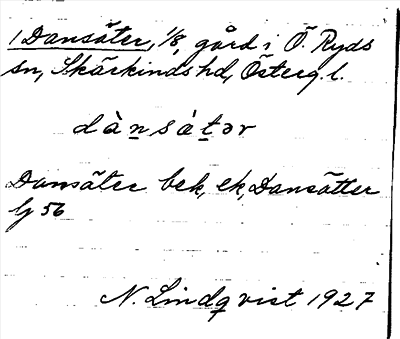 1 Dansäter, 1/8, gård i Ö. Ryds
sn, Skärkinds hd, Österg. l.
dànsàtər
Dansäter bek, ek, Dansätter
lj 56
N. Lindqvist 1927